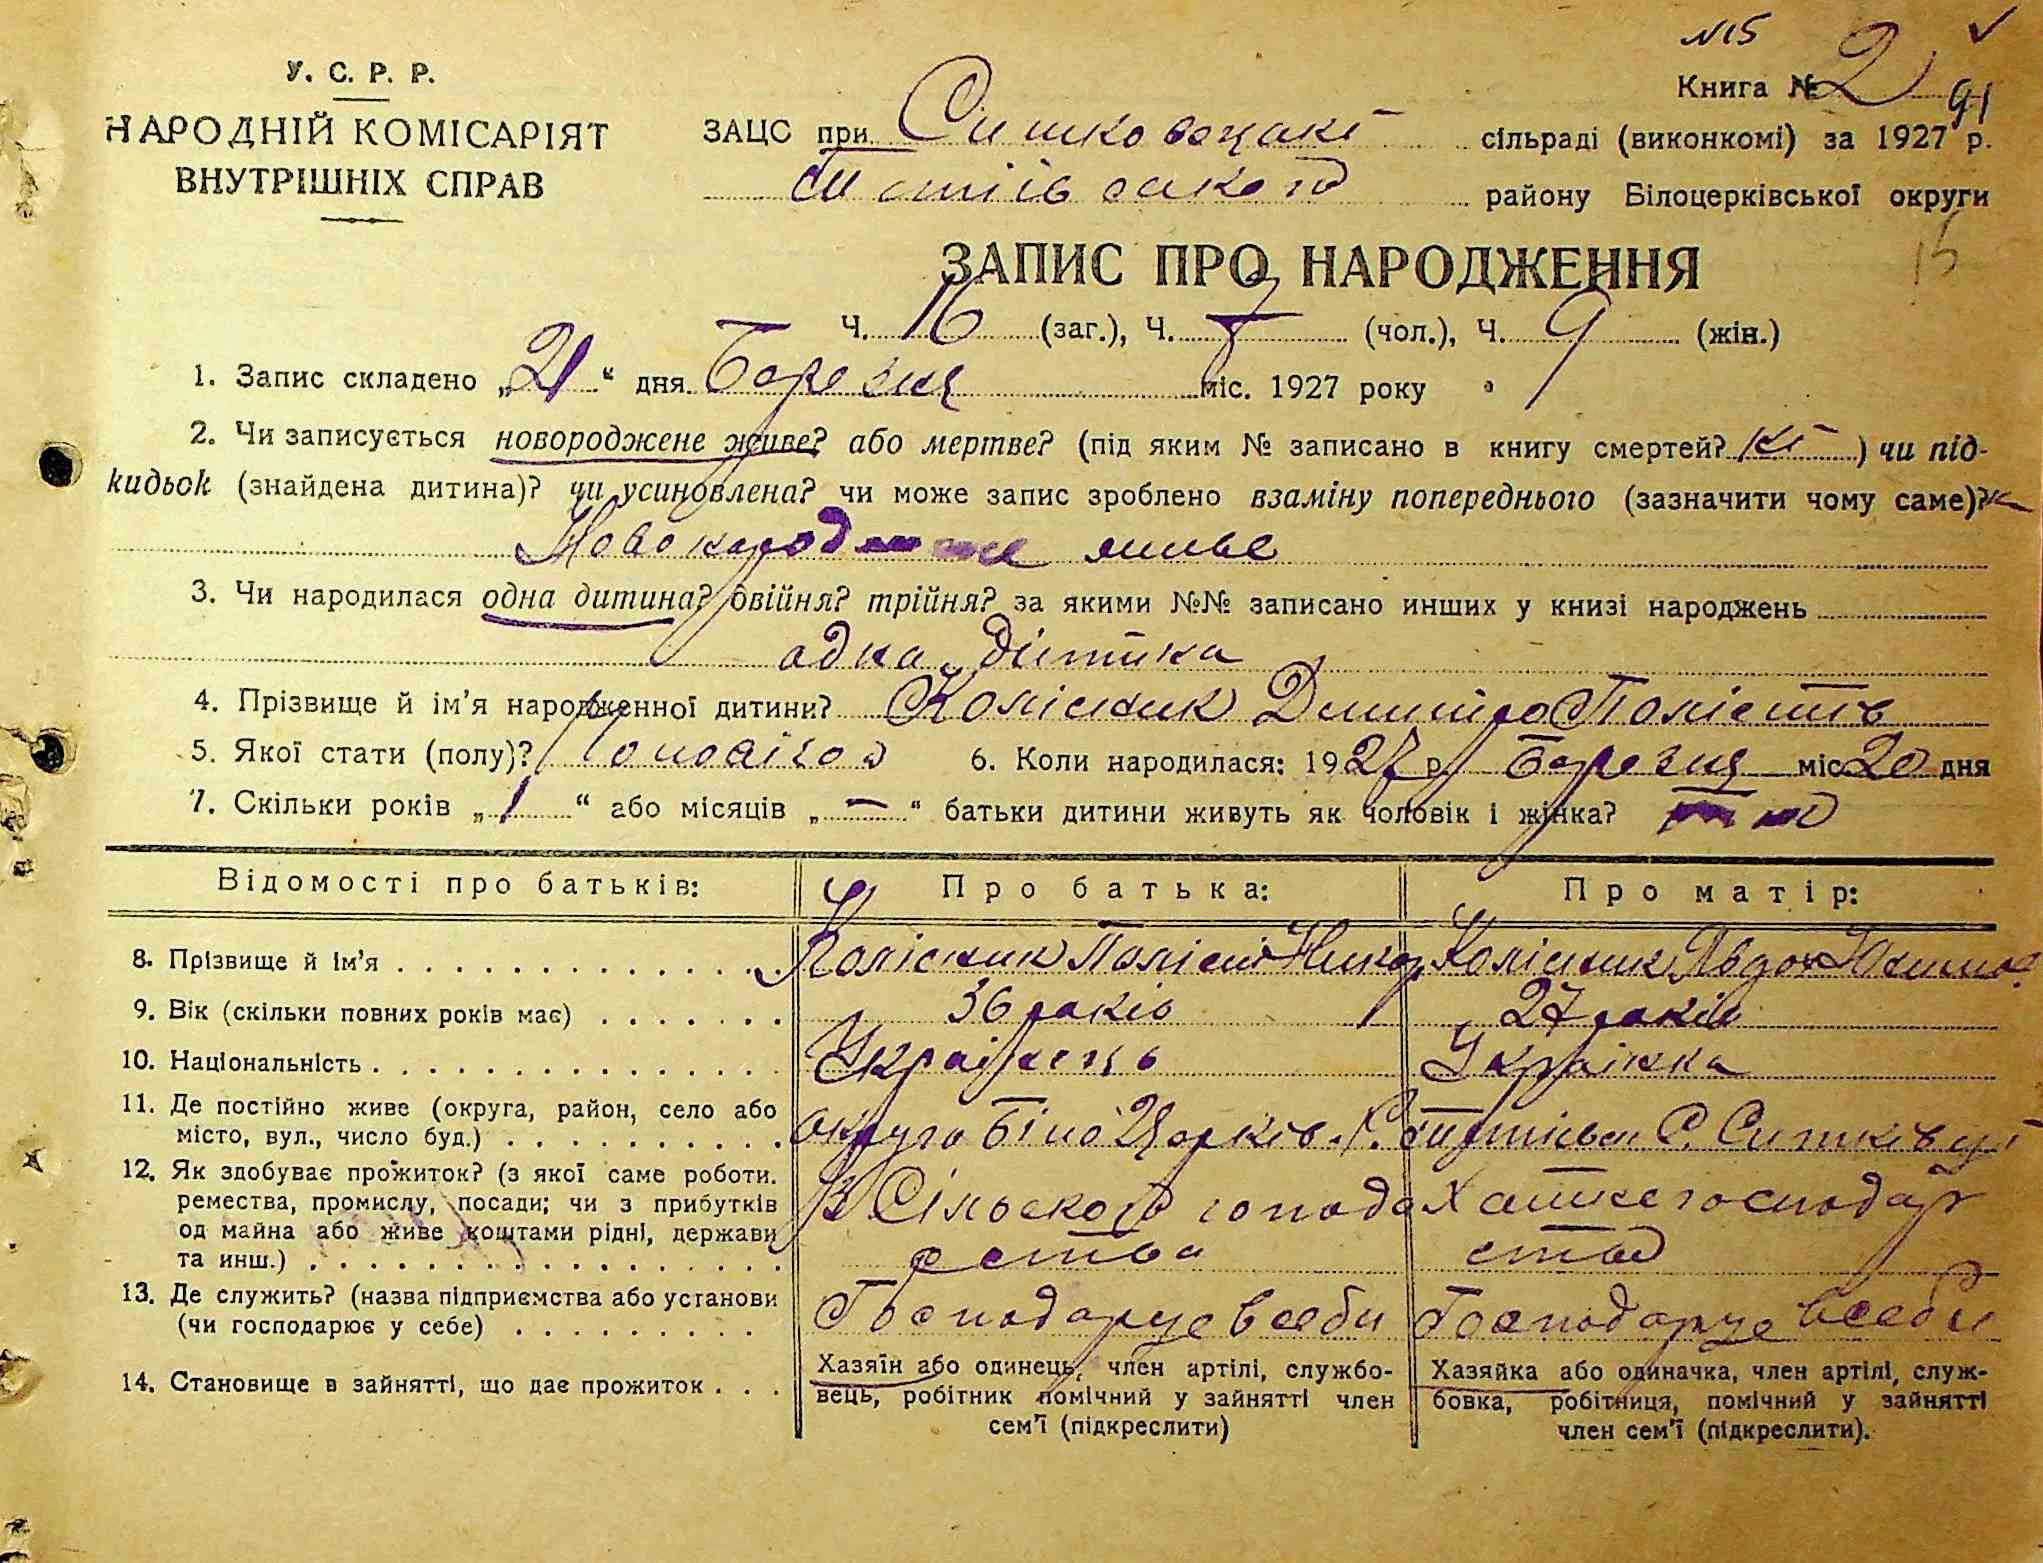 №15
У. С. Р. Р.
Книга № 2
91
НАРОДНІЙ КОМІСАРІЯТ
ЗАЦС при сільраді (виконкомі) за 1927 р.
ВНУТРІШНІХ СПРАВ
району Білоцерківської округи
15
ЗАПИС ПРО НАРОДЖЕННЯ
Ч. 16 (заг.), Ч. 7 (чол.), Ч. 9 (жін.)
1. Запис складено „21“ дня Березня міс. 1927 року
2. Чи записується новороджене живе? або мертве? (під яким № записано в книгу смертей? ) чи під-
кидьок (знайдена дитина)? чи усиновлена? чи може запис зроблено взаміну попереднього (зазначити чому саме)?
3. Чи народилася одна дитина? двійня? трійня? за якими №№ записано инших у книзі народжень
одна дитина
4. Прізвище й ім’я народженної дитини? Колісник Дмитро Полієтів
5. Якої стати (полу)? 6. Коли народилася: 1927 р. Березня міс. 20 дня
7. Скільки років „1“ або місяців „—“ батьки дитини живуть як чоловік і жінка?
Відомості про батьків: Про батька: Про матір:
8. Прізвище й ім’я . . . . . . . . . . . . . . Колісник Колісник
9. Вік (скільки повних років має) . . . . . . . 36 років 27 років
10. Національність . . . . . . . . . . . . . . . Українець Українка
11. Де постійно живе (округа, район, село або
місто, вул., число буд.) . . . . . . . . . . . округа Біло Церків.
12. Як здобуває прожиток? (з якої саме роботи.
ремества, промислу, посади; чи з прибутків
од майна або живе коштами рідні, держави
та инш.) . . . . . . . . . . . . . . . . . .
З Сільского господа
рства
Хатнє господар
ство
13. Де служить? (назва підприємства або установи
(чи господарює у себе) . . . . . . . . . Господарує в себи Господарує в себи
14. Становище в зайнятті, що дає прожиток . . .
Хазяїн або одинець, член артілі, службо-
вець, робітник помічний у зайнятті член
сем’ї (підкреслити)
Хазяйка або одиначка, член артілі, служ-
бовка, робітниця, помічний у зайнятті
член сем’ї (підкреслити).